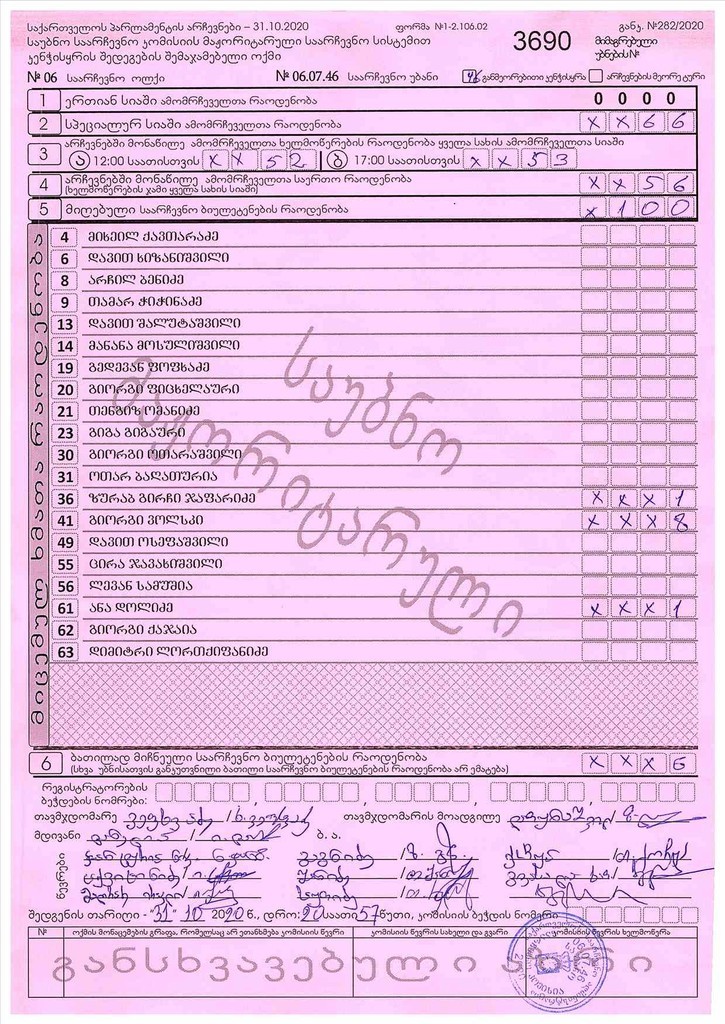 საქართველოს პარლამენტის არჩევნები – 31.10.2020 ფორმა №1-2.106.02 განკ. №282/2020
საუბნო საარჩევნო კომისიის მაჟორიტარული საარჩევნო სისტემით
კენჭისყრის შედეგების შემაჯამებელი ოქმი 3690 მიმაგრებული უბნების №
№ 06 საარჩევნო ოლქი № 06.07.46 საარჩევნო უბანი განმეორებითი კენჭისყრა არჩევნების მეორე ტური
1 ერთიან სიაში ამომრჩეველთა რაოდენობა 0 0 0 0
2 სპეციალურ სიაში ამომრჩეველთა რაოდენობა X X 6 6
3 არჩევნებში მონაწილე ამომრჩეველთა ხელმოწერების რაოდენობა ყველა სახის ამომრჩეველთა სიაში
ა 12:00 საათისთვის X X 5 2 ბ 17:00 საათისთვის X X 5 3
4 არჩევნებში მონაწილე ამომრჩეველთა საერთო რაოდენობა X X 5 6
(ხელმოწერების ჯამი ყველა სახის სიაში)
5 მიღებული საარჩევნო ბიულეტენების რაოდენობა X 1 0 0
მიცემულ ხმათა რაოდენობა
4 მიხეილ ქავთარაძე
6 დავით ხიზანიშვილი
8 არჩილ ბენიძე
9 თამარ ჭიჭინაძე
13 დავით შალუტაშვილი
14 მანანა მოსულიშვილი
19 გედევან ფოფხაძე
20 გიორგი ფიცხელაური
21 თენგიზ ომანიძე
23 გიგა გიგაური
30 გიორგი ოთარაშვილი
31 ოთარ ბაღათურია
36 ზურაბ გირჩი ჯაფარიძე X X X 1
41 გიორგი ვოლსკი X X X 8
49 დავით ოსეფაშვილი
55 ცირა ჯავახიშვილი
56 ლევან სამუშია
61 ანა დოლიძე X X X 1
62 გიორგი ქაჯაია
63 დიმიტრი ლორთქიფანიძე
საუბნო
მაჟორიტარული
6 ბათილად მიჩნეული საარჩევნო ბიულეტენების რაოდენობა X X X 6
(სხვა უბნისათვის განკუთვნილი ბათილი საარჩევნო ბიულეტენების რაოდენობა არ ემატება)
რეგისტრატორების
ბეჭდების ნომრები:
თავმჯდომარე თავმჯდომარის მოადგილე
მდივანი ბ. ა.
წევრები
შედგენის თარიღი - "31" 10 2020 წ., დრო: 20 საათი 57 წუთი, კომისიის ბეჭდის ნომერი
№ ოქმის მონაცემების გრაფა, რომელსაც არ ეთანხმება კომისიის წევრი კომისიის წევრის სახელი და გვარი კომისიის წევრის ხელმოწერა
განსხვავებული აზრი